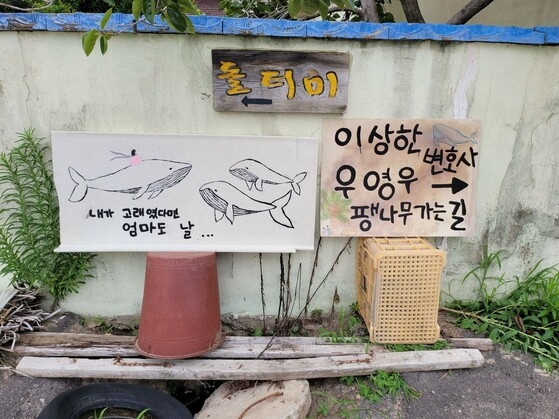 돌터미
내가 고래였다면
엄마도 날 ...
이상한
변호사
우영우
팽나무가는길